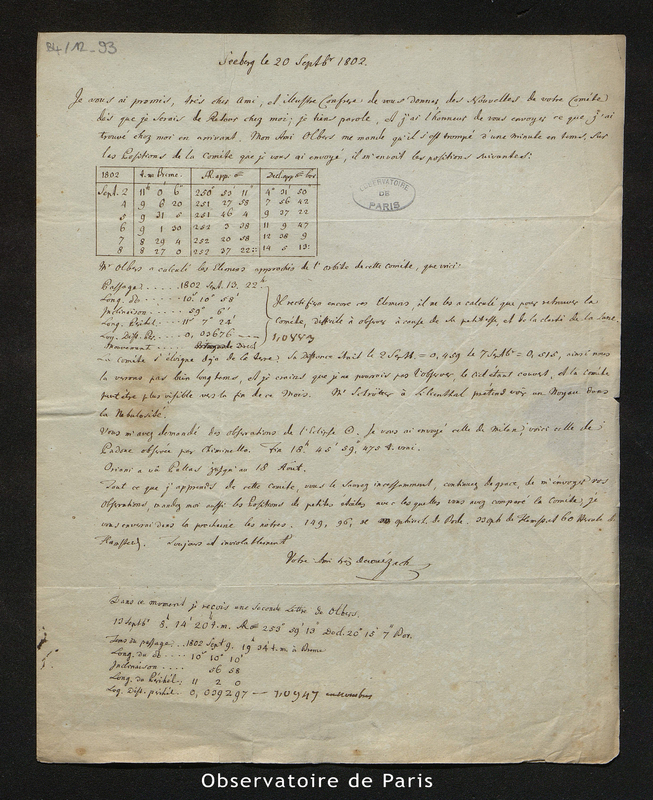 84/12-93
Seeberg le 20 Septbr 1802.
Je vous ai promis, très cher Ami, et illustre Confrere de vous donner des Nouvelles de votre Comète
dès que je serois de Retour chez moi; je tiens parole, et j'ai l'honneur de vous envoyer ce que j'ai
trouvé chez moi en arrivant. Mon Ami Olbers me mande qu'il s'est trompé d'une minute en tems, sur
les Positions de la Comète que je vous ai envoyé, il m'envoit les positions suivantes:
1802 t. m. Breme. AR. app. Decl. app. bor.
Sept. 2 11h 0' 6" 250° 50' 11" 4° 31' 50
4 9 6 20 251 27 58 7 56 42
5 9 31 5 251 46 4 9 37 22
6 9 1 30 252 3 38 11 9 47
7 8 29 4 252 20 58 12 38 9
8 8 27 0 252 37 22:: 14 5 13:
OBSERVATOIRE
DE
PARIS
Mr Olbers a calculé les Elemens approchés de l'orbite de cette comète, que voici
Passage ..... 1802 Sept. 13, 22h
Long. du ..... 10s 10° 58'
Inclinaison ..... 59° 6'
Long. Périhel. ... 11s 7° 24'
Log. Dist. Per. ... 0,03676
Il rectifiera encore ces Elemens il ne les a calculé que pour retrouver la
Comète, difficile à observer à cause de sa petitesse, et de la clarté de la Lune.
1,0883
Mouvement Direct
La comète s'éloigne deja de la Terre; sa Distance étoit le 2 Sept. = 0,459 le 7 Septb. = 0,515, ainsi nous
la verrons pas bien long tems, et je crains que je ne pourrois pas l'observer, le ciel étant couvert, et la comète
peut être plus visible vers la fin de ce Mois. Mr Schröter à Lilienthal prétend voir un Noyau dans
la Nebulosité.
Vous m'avez demandé des observations de l'Eclipse ☉. Je vous ai envoyé celle de Milan; voici celle de
Padoue observée par Chiminello. Fin 18h 45' 59", 473 t. vrai.
Oriani a vû Pallas jusqu'au 18 Aout.
Tout ce que j'apprends de cette comète, vous le saurez incessamment, continuez de grace, de m'envoyer vos
observations, mandez moi aussi les Positions de petites étoiles avec lesquelles vous avez comparé la Comète; je
vous enverrai dans la prochaine les nôtres. 149, 96, de Ophiuch. de Bode. Oph. de Flamst. et 60 Hercule de
Flamsteed. Toujours et inviolablement
Votre Ami très devoué Zach
Dans ce moment je reçois une seconde Lettre de Olbers.
13 Septbr 8h 14' 20" t. m. AR 253° 59' 13" Decl. 20° 15' 7" Bor.
Tems du passage: .. 1802 Sept 9. 19h 34' t. m. à Breme
Long. du ..... 10s 10° 10'
Inclinaison .... 56 58
Long. du Périhel.; 11 2 0
Log. Dist. périhel. 0,039297 — 1,0947
Observatoire de Paris